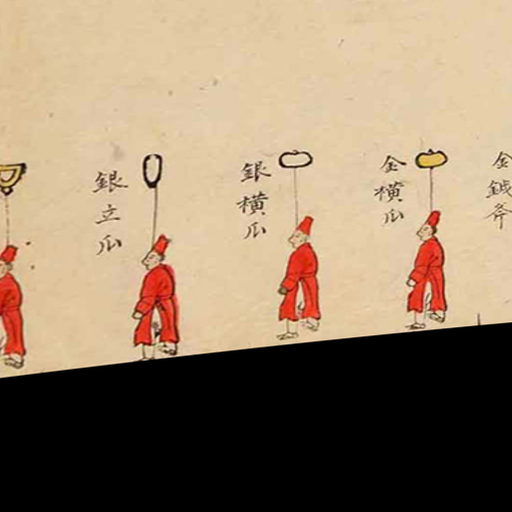 金鉞斧
金橫瓜
銀橫瓜
銀立瓜